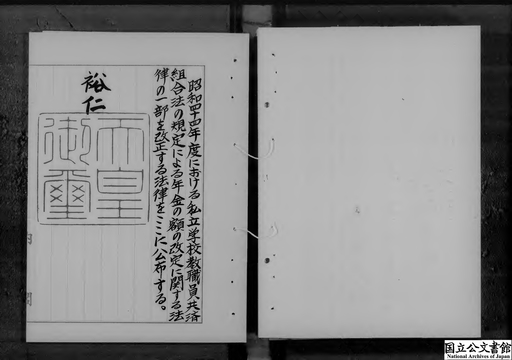 昭和四十四年度における私立学校教職員共済
組合法の規定による年金の額の改定に関する法
律の一部を改正する法律をここに公布する。
裕仁
天皇
御璽
国立公文書館
National Archives of Japan